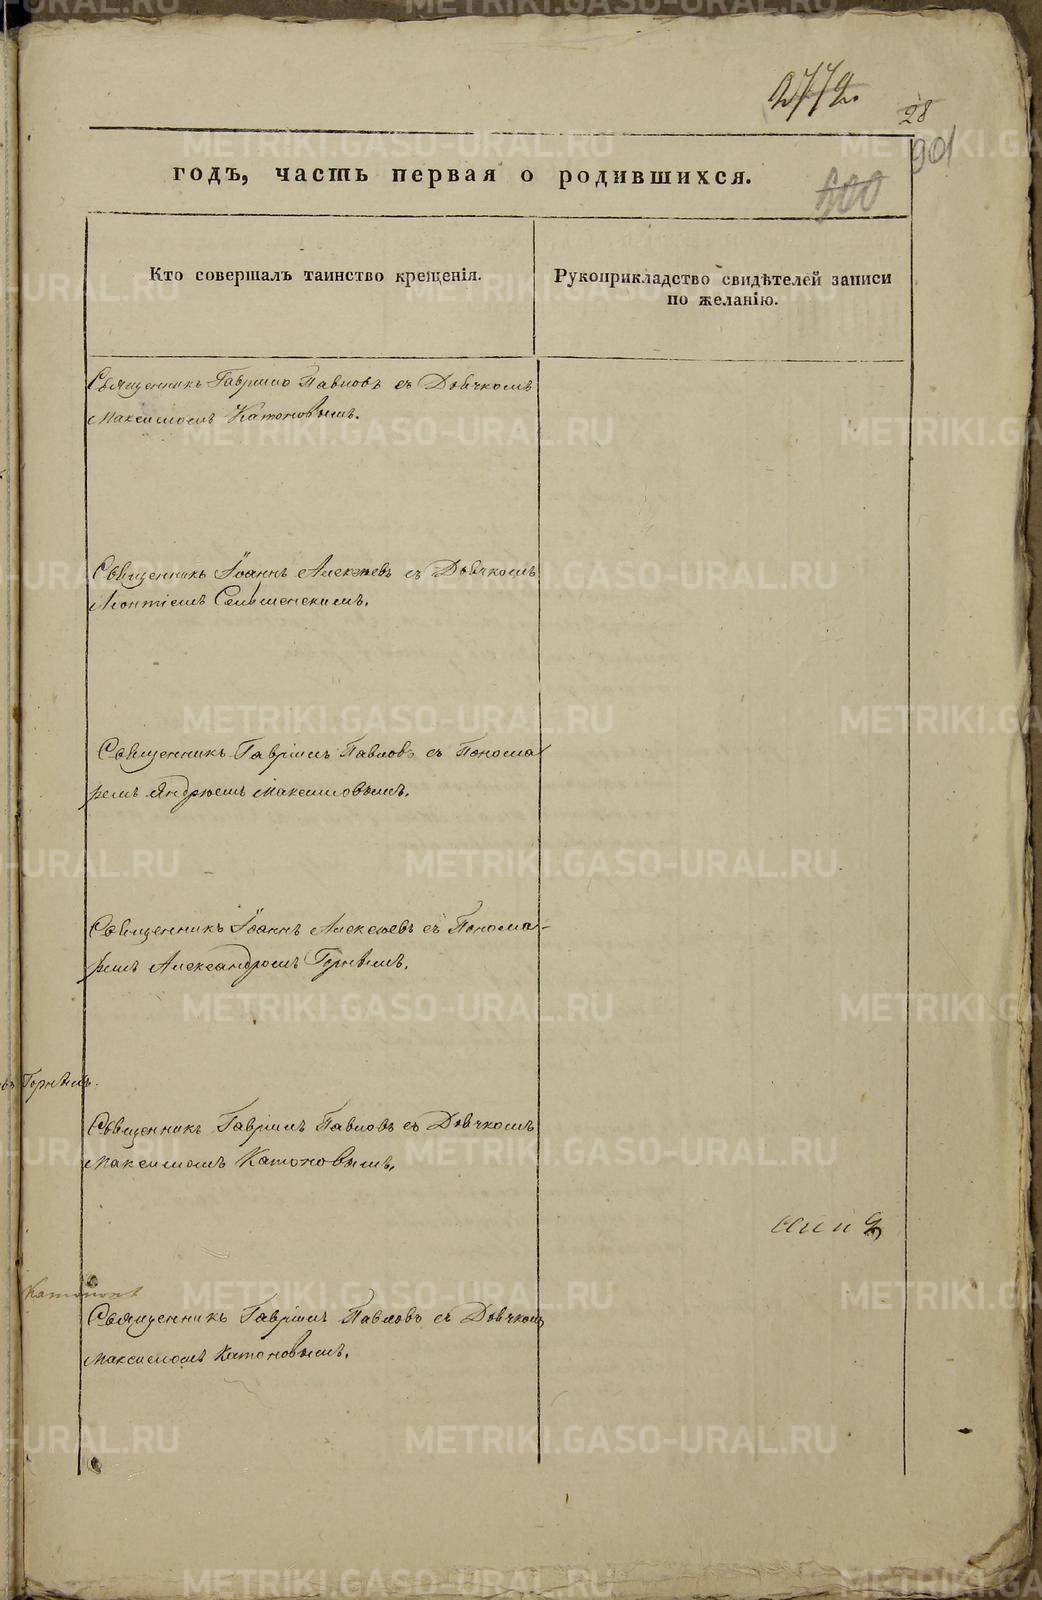 2772.
28
901
900
годъ, часть первая о родившихся.
Кто совершалъ таинство крещенія.
Рукоприкладство свидѣтелей записи
по желанію.
Священникъ Гавріилъ Павловъ съ Дьячкомъ
Максимомъ Катоновымъ.
Священникъ Іоаннъ Алексѣевъ съ Дьячкомъ
Леонтіемъ Сельменскимъ.
Священникъ Гавріилъ Павловъ съ Понома
ремъ Андреемъ Максимовымъ.
Священникъ Іоаннъ Алексѣевъ съ Понома-
ремъ Александромъ Горнымъ.
Горнымъ.
Священникъ Гавріилъ Павловъ съ Дьячкомъ
Максимомъ Катоновымъ.
Катоновъ
Священникъ Гавріилъ Павловъ съ Дьячкомъ
Максимомъ Катоновымъ.
METRIKI.GASO-URAL.RU